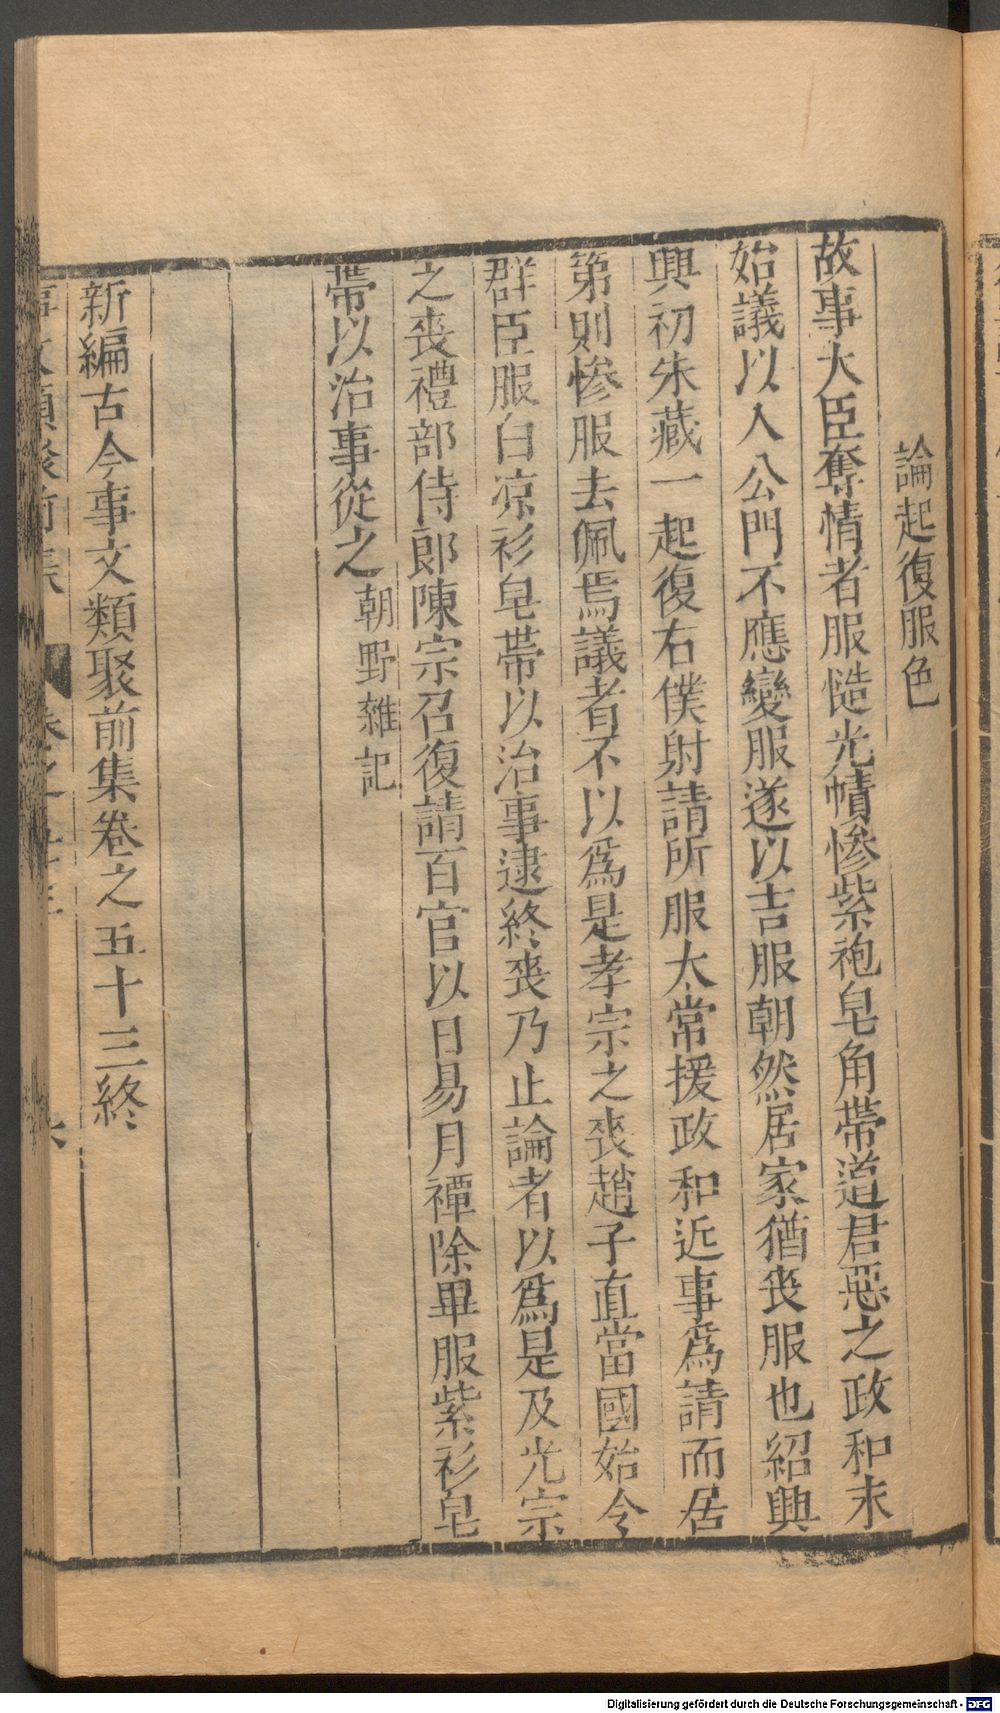 論起復服色
故事大臣奪情者服慥光幘惨紫袍皂角帶道君惡之政和末
始議以入公門不應變服遂以吉服朝然居家猶丧服也紹興
興初朱藏一起復右僕射請所服太常援政和近事爲請而居
第則惨服去佩焉議者不以爲是孝宗之丧趙子直當國始令
群臣服白凉衫皂帶以治事逮終丧乃止論者以爲是及光宗
之丧禮部侍郎陳宗召復請百官以日易月禫除畢服紫衫皂
帶以治事從之朝野雜記
新編古今事文類聚前集卷之五十三終
Digitalisierung gefördert durch die Deutsche Forschungsgemeinschaft - DFG